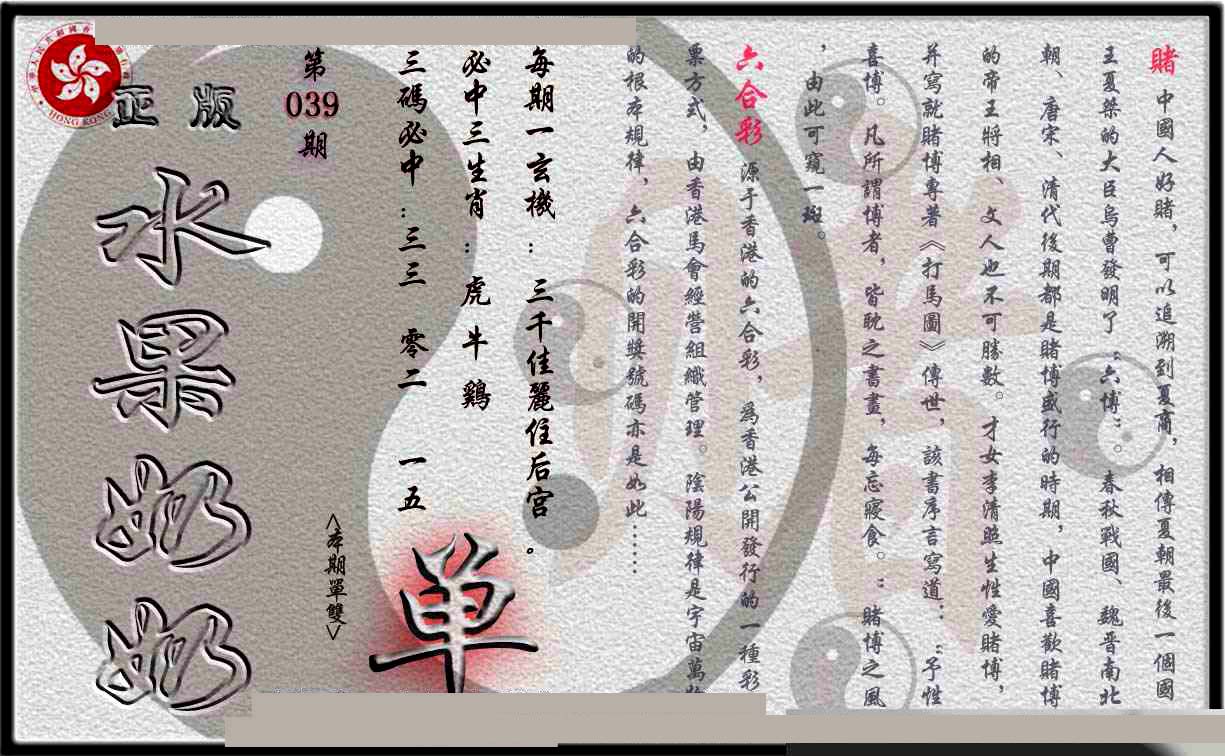 賭 中國人好賭，可以追溯到夏商，相傳夏朝最後一個國
王夏桀的大臣烏曹發明了“六博”。春秋戰國、魏晋南北
朝、唐宋、清代後期都是賭博盛行的時期，中國喜歡賭博
的帝王將相、文人也不可勝數。才女李清照生性愛賭博，
并寫就賭博專著《打馬圖》傳世，該書序言寫道：“予性
喜博。凡所謂博者，皆耽之書畫，每忘寢食。：賭博之風
，由此可窺一斑。
六合彩 源于香港的六合彩，爲香港公開發行的一種彩
票方式，由香港馬會經營組織管理。陰陽規律是宇宙萬物
的根本規律，六合彩的開獎號碼亦是如此……
每期一玄機：三千佳麗住后宫。
必中三生肖：虎 牛 鷄
三碼必中：三三 零二 一五
單
<本期單雙>
第
039
期
正版
水果奶奶
HONG KONG